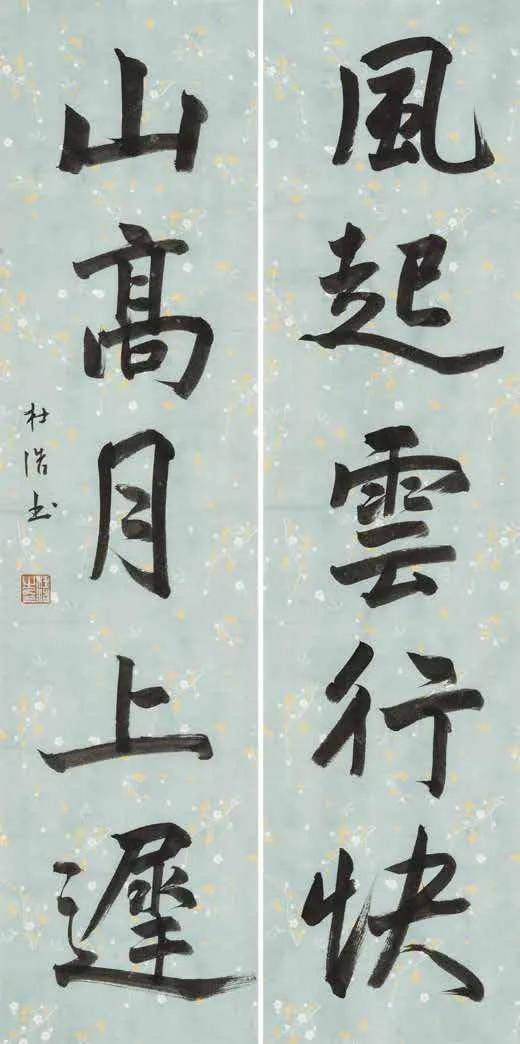 風起雲行快
山高月上遲
杜浩书